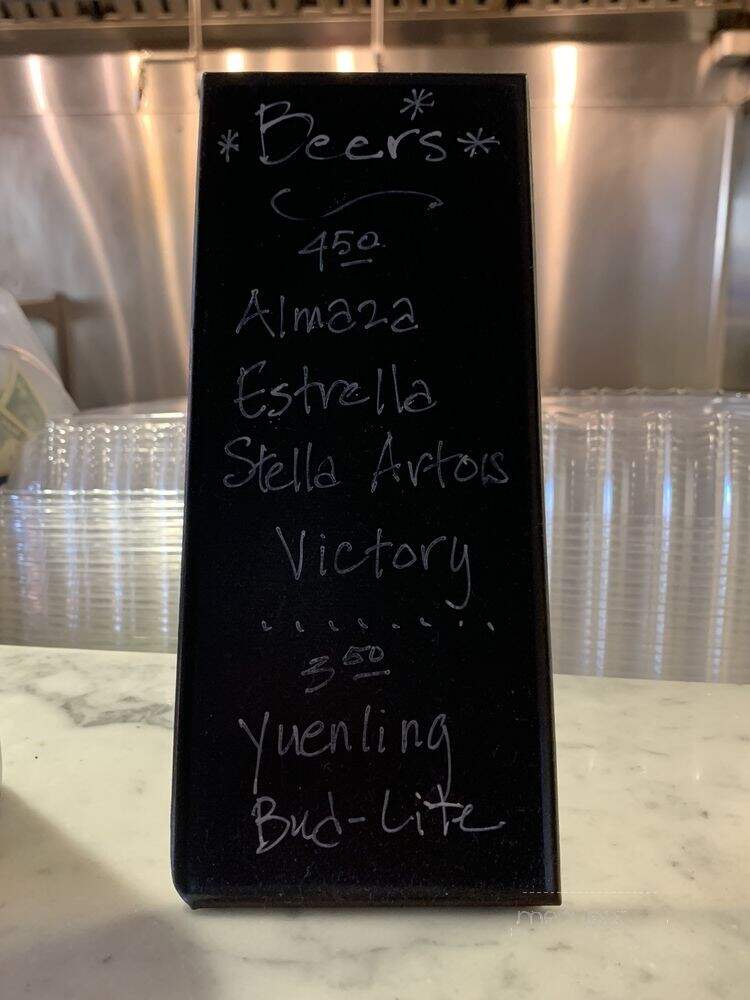 * Beers *
450
Almaza
Estrella
Stella Artois
Victory
........
350
Yuenling
Bud-Lite